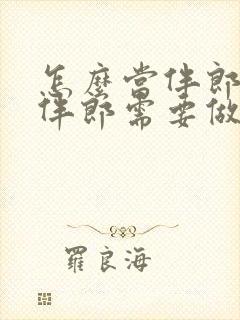 怎麼當伴郎
伴郎需要做
羅良海